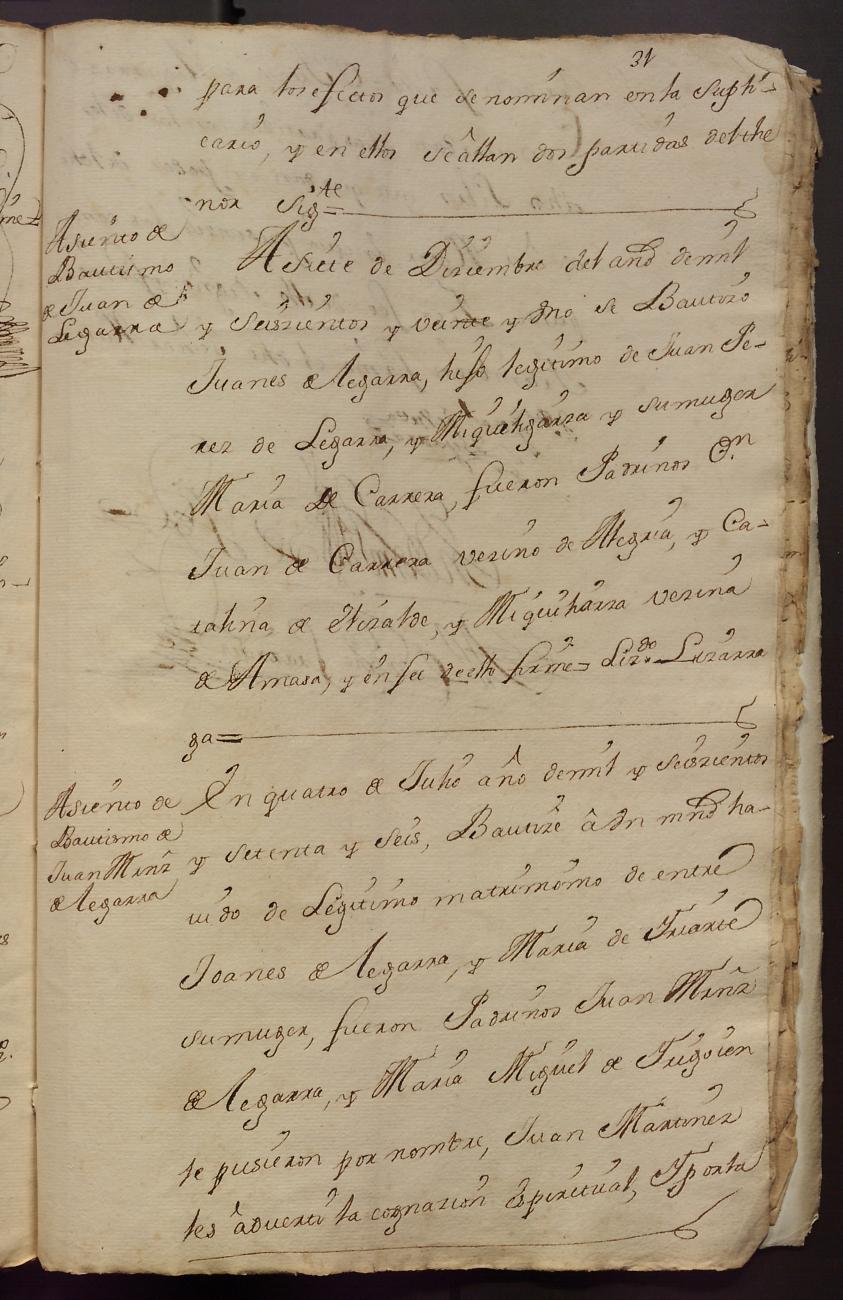 31
para los efectos que se nominan en la supli-
cario, y en ellos se âllan dos partidas del the
nor Sig.te=
Asiento de
Bautismo
de Juan de
Legarra
A siete de Diziembre del año de mil
y seiszientos y veinte y vno se Bautizó
Juanes de Legarra, hijo legitimo de Juan Pe-
rez de Legarra, y Miqueligarza y su muger
Maria de Carrera, fueron Padrinos Dn
Juan de Carrera vezino de Alegria, y Ca-
talina de Elizalde, y Miquiliarza vezina
de Amasa, y en fee de ello firmê= Lizdo. Lizarra
ga=
Asiento de
Bautismo de
Juan Mrñz
de Legarra
En quatro de Julio año de mil y seiszientos
y setenta y seis, Bautizê â vn niño ha-
uido de Legitimo matrimonio de entre
Joanes de Legarra, y Maria de Yriarte
su muger, fueron Padrinos Juan Mrñz
de Legarra, y Maria Miguel de Yrigoien
le pusieron por nombre, Juan Martinez
les âduerti la cognazion Espiritual, Y por la